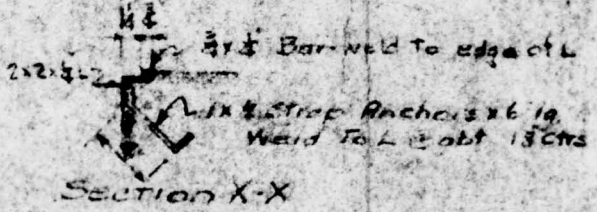 1¼
¾ x ¼ Bar-weld To edge of L
2x2x¼ L
1x ¼ Strap Anchors x 6 lg
Weld To L @ abt 18 Ctrs
Section X-X